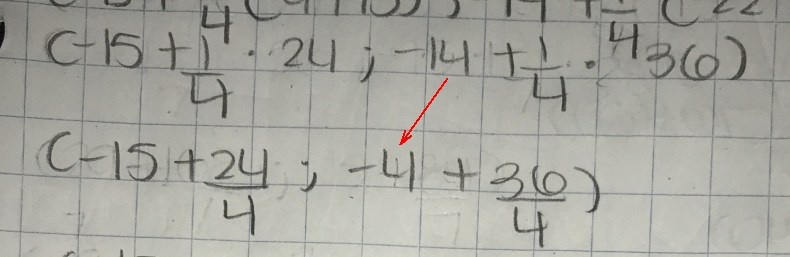 (-15 + 1/4 · 24 ; -14 + 1/4 · 36)
(-15 + 24/4 ; -4 + 36/4)